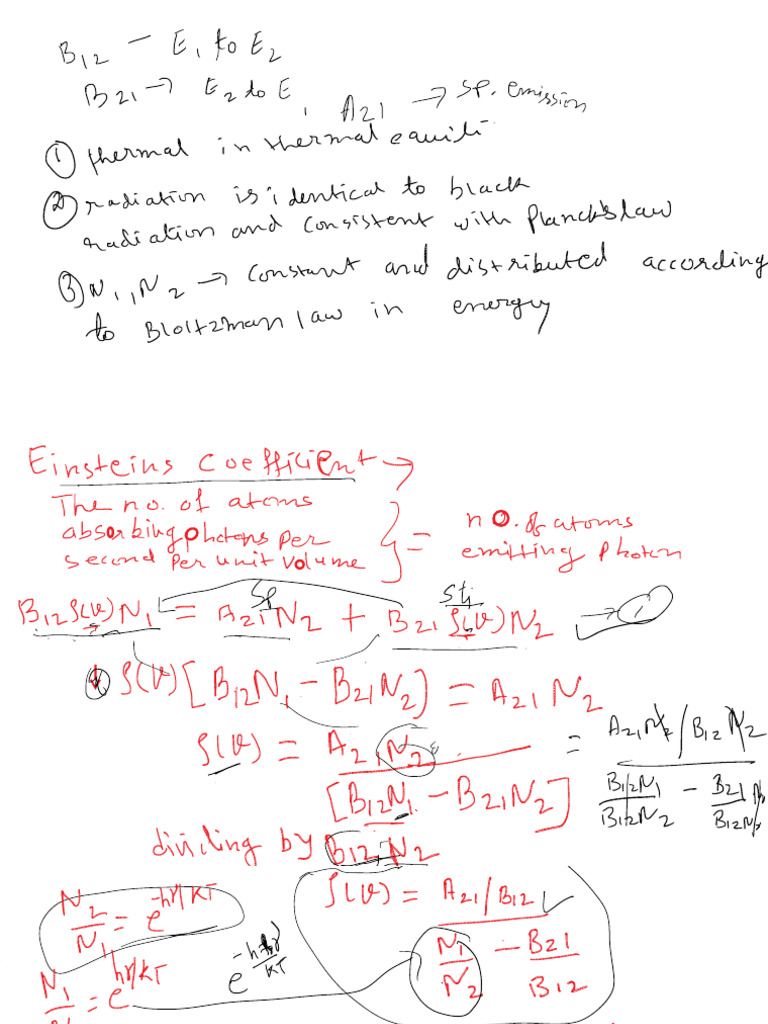 B12 — E1 to E2
B21 → E2 to E1, A21 → sp. emission
① thermal in thermal equili
② radiation is identical to black
radiation and consistent with Planck's law
③ N1, N2 → constant and distributed according
to Bloltzman law in energy
Einsteins coefficient →
The no. of atoms
absorbing photons per
second per unit volume } = no. of atoms
emitting photon
B12 ρ(ν) N1 = A21 N2 + B21 ρ(ν) N2 → ①
sp sti
ρ(ν) [B12 N1 − B21 N2] = A21 N2
ρ(ν) = A21 N2 / [B12 N1 − B21 N2] = A21 N2 / B12 N2 / B12 N1 / B12 N2 − B21 N2 / B12 N2
dividing by B12, N2
N2 / N1 = e^-hν/KT
ρ(ν) = A21 / B12 / N1 / N2 − B21 / B12
N1 / = e^hν/KT
e^-hν/KT